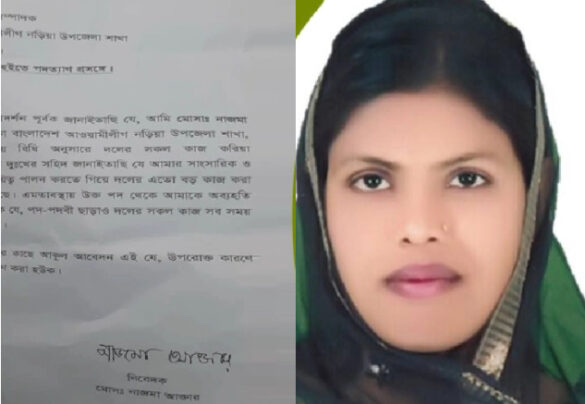 ম্পাদক
লীগ নড়িয়া উপজেলা শাখা
হইতে পদত্যাগ প্রসঙ্গে।
দর্শন পূর্বক জানাইতাছি যে, আমি মোসাঃ নাজমা
বাংলাদেশ আওয়ামীলীগ নড়িয়া উপজেলা শাখা,
য় বিধি অনুসারে দলের সকল কাজ করিয়া
দুঃখের সহিদ জানাইতাছি যে আমার সাংসারিক ও
য়ত্ব পালন করতে গিয়ে দলের এতো বড় কাজ করা
ছে। এমতাবস্থায় উক্ত পদ থেকে আমাকে অব্যহতি
ক যে, পদ-পদবী ছাড়াও দলের সকল কাজ সব সময়
র কাছে আকুল আবেদন এই যে, উপরোক্ত কারণে
ণ করা হউক।
নিবেদক
মোসাঃ নাজমা আক্তার